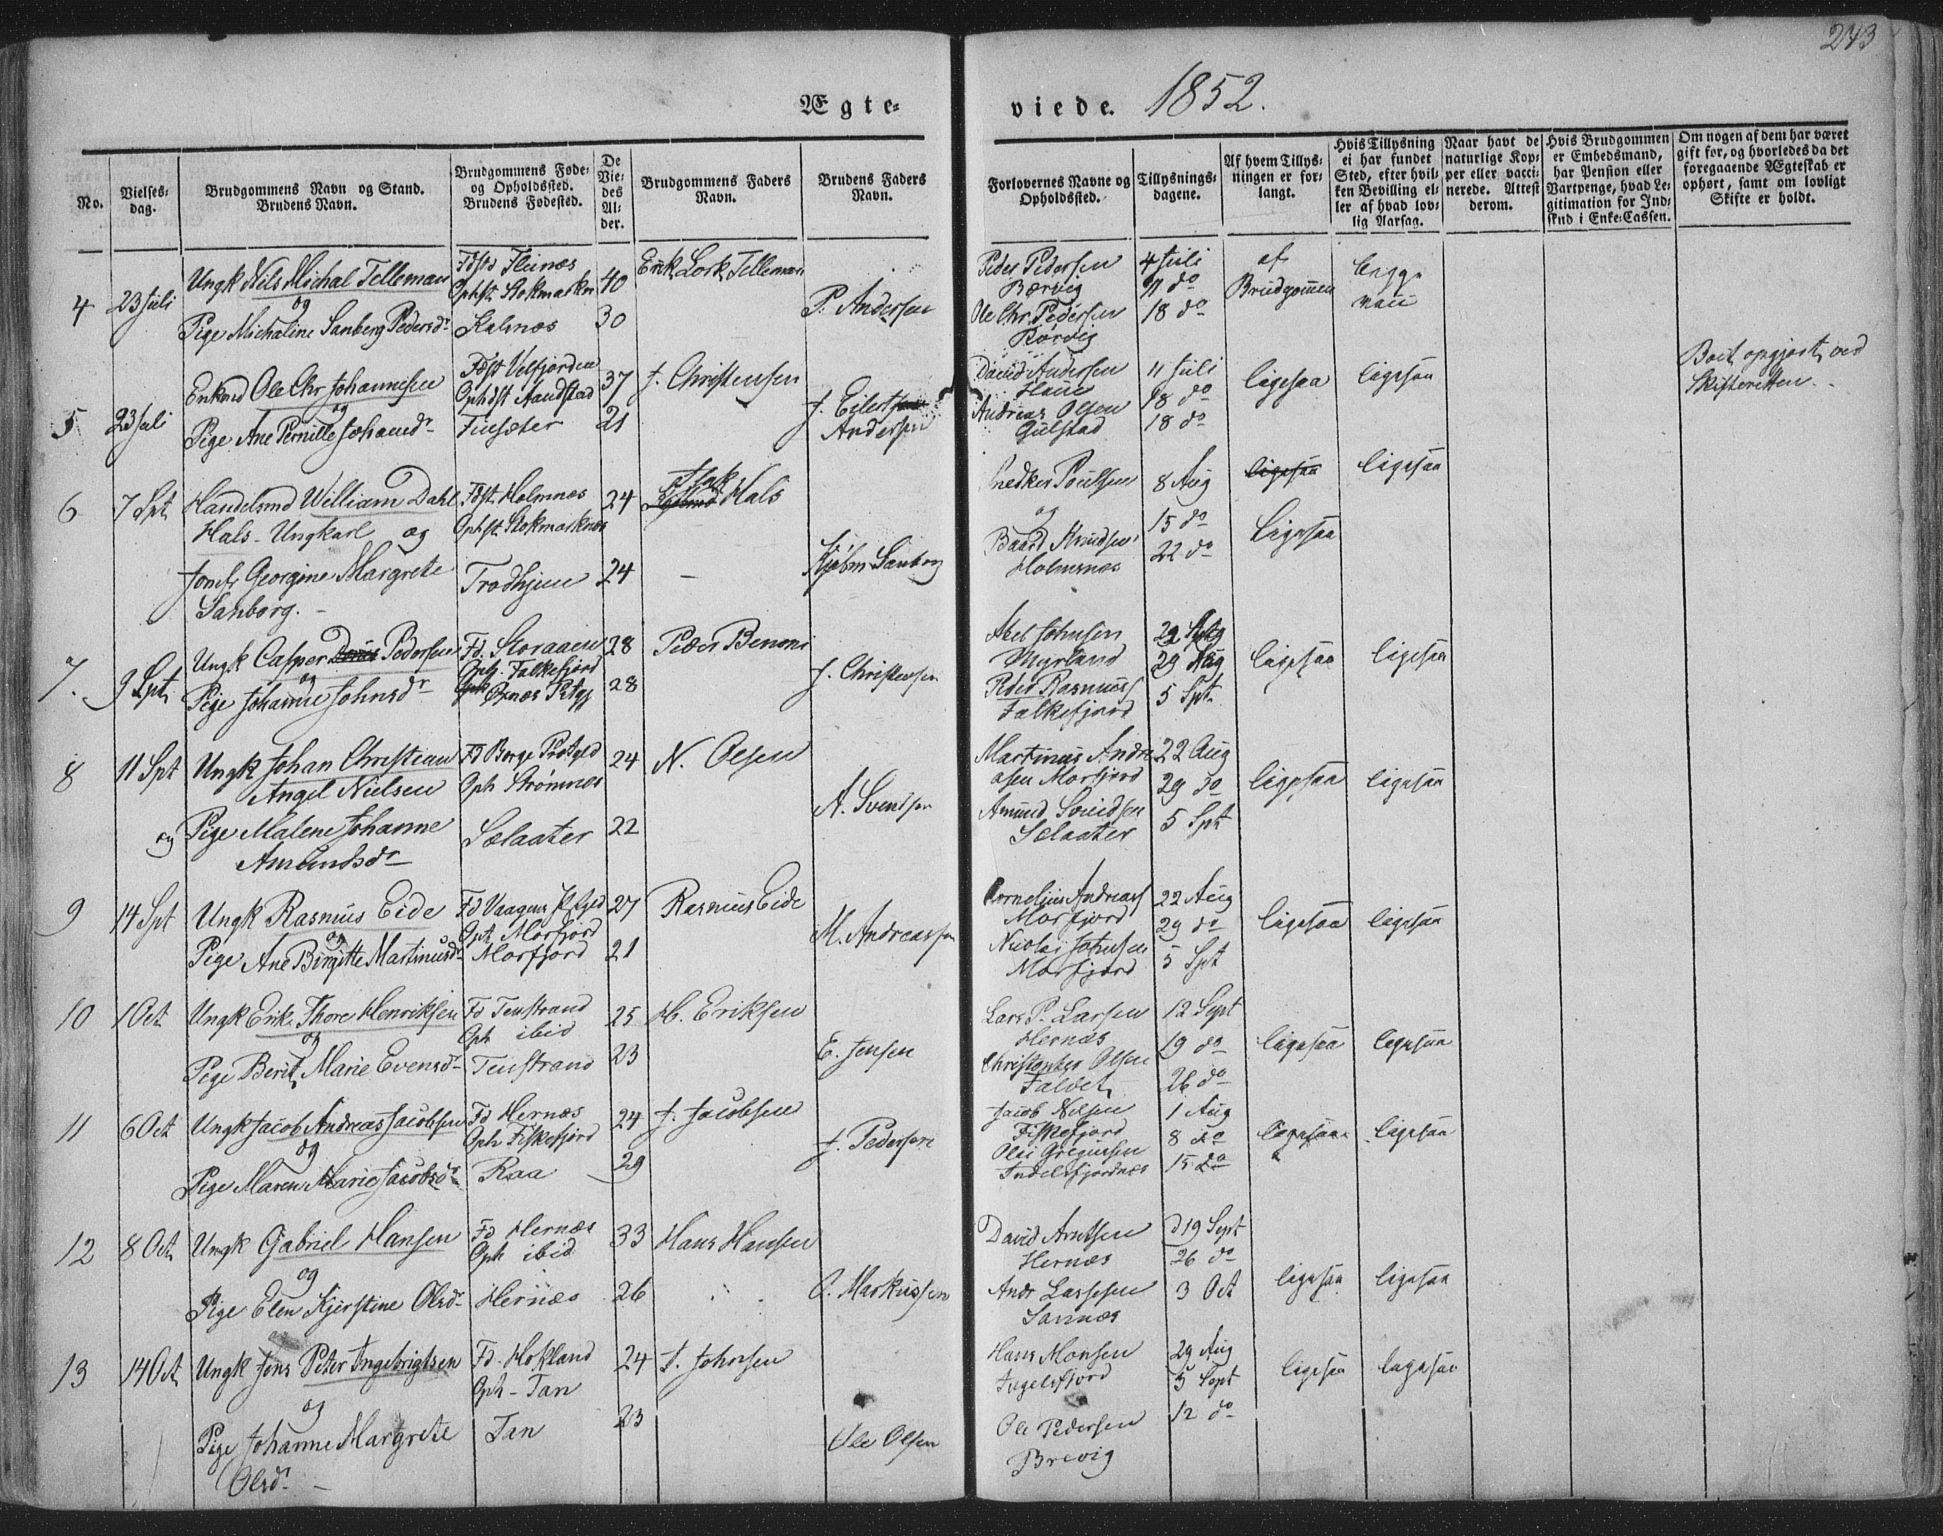 243
Ægte-
viede. 1852.
No.
Vielses-
dag.
Brudgommens Navn og Stand.
Brudens Navn.
Brudgommens Føde-
og Opholdssted.
Brudens Fødested.
De
Vie-
des
Al-
der.
Brudgommens Faders
Navn.
Brudens Faders
Navn.
Forlovernes Navne og
Opholdssted.
Tillysnings-
dagene.
Af hvem Tillys-
ningen er for-
langt.
Hvis Tillysning
ei har fundet
Sted, efter hvil-
ken Bevilling el-
ler af hvad lov-
lig Aarsag.
Naar havt de
naturlige Kop-
per eller vacci-
nerede. Attest
derom.
Hvis Brudgommen
er Embedsmand,
har Pension eller
Vartpenge, hvad Le-
gitimation for Ind-
skud i Enke-Cassen.
Om nogen af dem har været
gift før, og hvorledes da det
foregaaende Ægteskab er
ophørt, samt om lovligt
Skifte er holdt.
4 23 Juli Ungk Nils Michal Telleman
og
Pige Michaline Sanberg Pedersdr
Fdst Flenæs
Ophst. Stokmarkn
Kalnæs
40
30
Erik Lork Telleman
P. Andersen
Peder Pedersen
Børvig
Ole Chr. Pedersen
Rørvig
4 Juli
11 do
18 do
af
Brudgommen
begge
5 23 Juli Enkmd Ole Chr Johannesen
og
Pige Ane Pernille Johansdr
Fdst Velfjorden
Ophdst Aandstad
Finsæter
37
21
J. Christensen
J. Eilertsen
Andersen
David Andersen
Andreas Olsen
Gulstad
11 Juli
18 do
18 do
ligesaa
ligesaa
Boet opgjort ved
Skifteretten.
6 7 Spt Handelsmd William Dahl
Hals - Ungkarl og
Jomfr Georgine Margrete
Sanborg. -
Fdst. Holmnæs
Ophst. Stokmarknæs
Trodhjem
24
24
Hals
-
Sanborg
Poulsen
og
Baard Knudsen
Holmsnæs
8 Aug
15 do
22 do
ligesaa
ligesaa
ligesaa
7. 9 Spt Ungk Casper Pedersen
og
Pige Johanne Johnsdr
Fd. Storaaen
Oph. Falkefjord
28
28
Peder Benoni
J. Christensen
Axel Johnsen
Myrland
Peder Rasmuss
Falkefjord
22
29 Aug
5 Spt
ligesaa
ligesaa
8 11 Spt Ungk Johan Christian
Angel Nielsen
og Pige Malene Johanne
Amundsdr
Fd Borge Prstgjld
Oph Strømnes
Sælaater
24
22
N. Olsen
A. Svendsen
Martinus Andre
asen Morfjord
Amund Svendsen
Sælaater
22 Aug
29 do
5 Spt
ligesaa
ligesaa
9 14 Spt Ungk Rasmus Eide
og
Pige Ane Birgitte Martinusdr
Fd Vaagens Pgjld
Oph Morfjord
Morfjord
27
21
Rasmus Eide
M. Andreassen
Cornelius Andreass
Morfjord
Nicolai Johnsen
Morfjord
22 Aug
29 do
5 Spt
ligesaa
ligesaa
10 1 Oct Ungk Erik Thore Henriksen
og
Pige Berit Marie Evensdr
Fd Tenstrand
Oph ibid
Tenstrand
25
23
H. Eriksen
E. Jensen
Lars P. Larsen
Hernæs
Christopher Olsen
12 Sept
19 do
26 do
ligesaa
ligesaa
11 6 Oct Ungk Jacob Andreas Jacobsen
og
Pige Maren Marie Jacobsdr
Fd Hernæs
Oph Fiskefjord
Raa
24
29
J. Jacobsen
J. Pedersen
Jacob Nilsen
Fiskefjord
1 Aug
8 do
15 do
ligesaa
ligesaa
12 8 Oct Ungk Gabriel Hansen
og
Pige Elen Kjerstine Olsdr
Fd Hernæs
Oph ibid
Hernæs
33
26
Hans Hansen
O. Markussen
David Arntsen
Hernæs
Andr Larsen
Sannæs
19 Sept
26 do
3 Oct
ligesaa
ligesaa
13 14 Oct Ungk Jens Peter Ingebrigtsen
og
Pige Johanne Margrete
Olsdr -
Fd. Hokland
Oph - Tan
Tan
24
23
J. Johnsen
Ole Olsen
Hans Monsen
Ingelsfjord
Ole Pedersen
Brevig
29 Aug
5 Sept
12 do
ligesaa
ligesaa